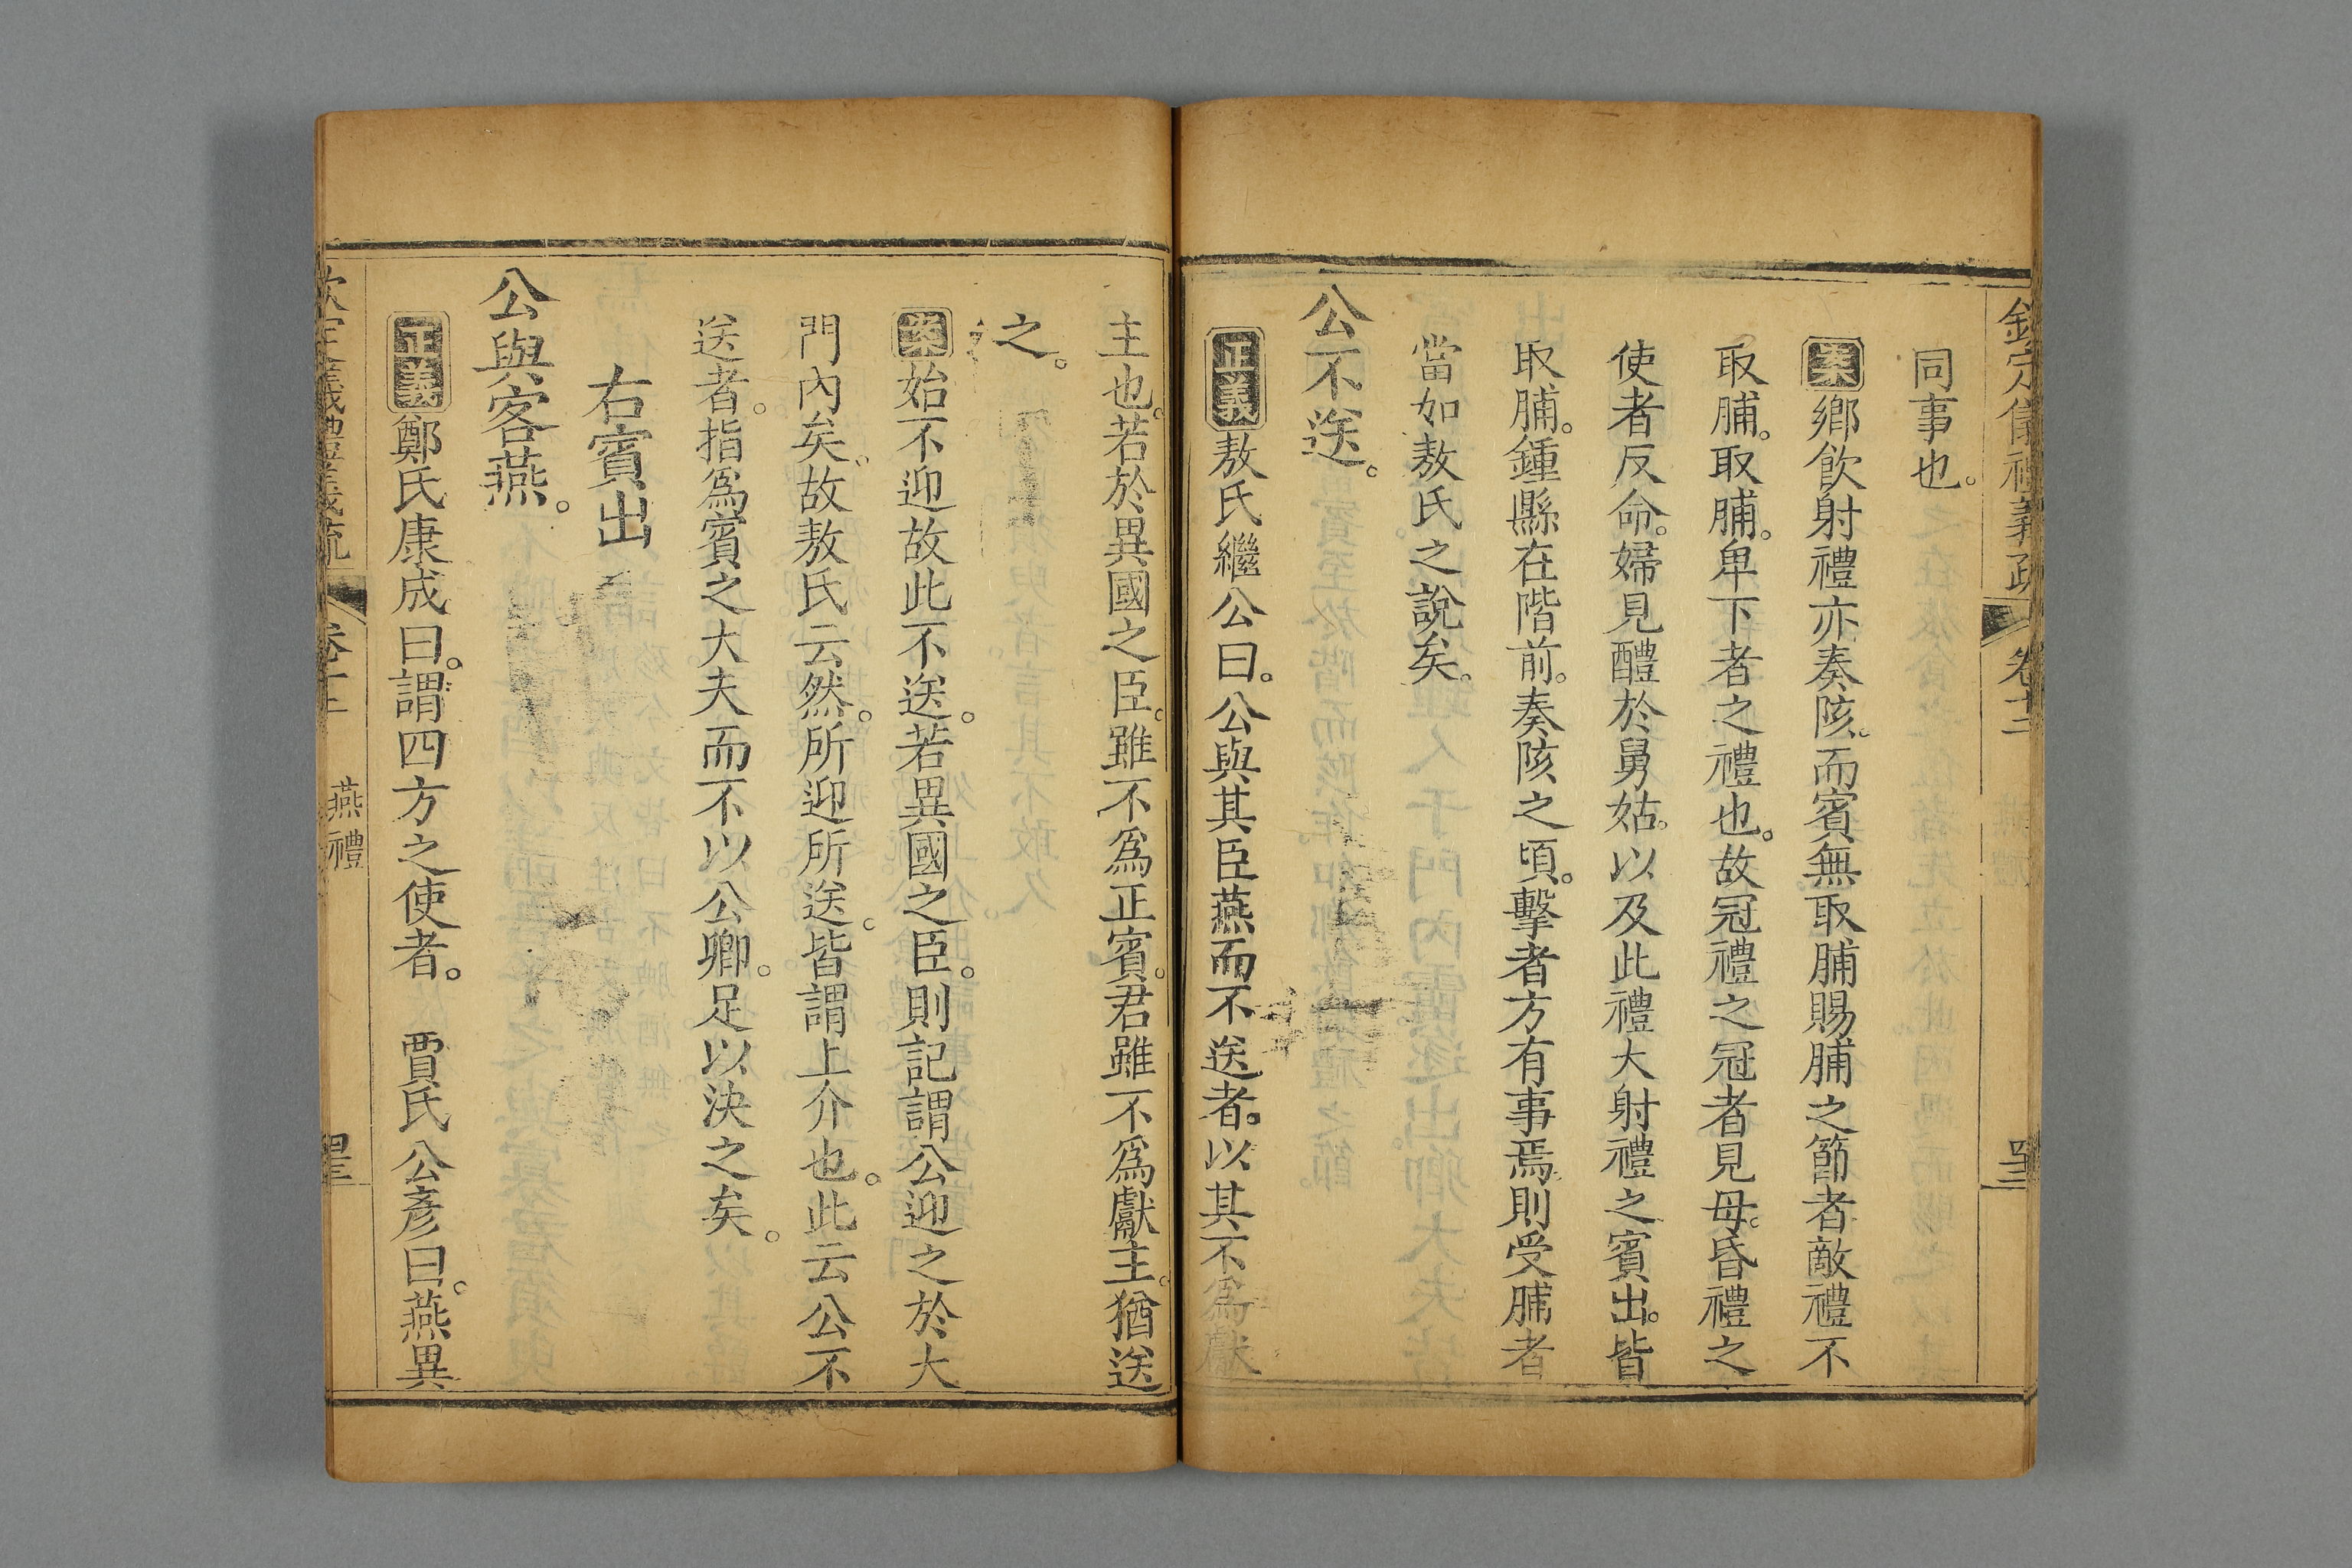 欽定儀禮義疏 卷十二
同事也。
案鄉飲射禮亦奏陔。而賓無取脯賜脯之節者敵禮不
取脯。取脯。卑下者之禮也。故冠禮之冠者見母。昏禮之
使者反命。婦見醴於舅姑。以及此禮大射禮之賓出。皆
取脯。鍾縣在階前。奏陔之頃。擊者方有事焉。則受脯者
當如敖氏之說矣。
公不送。
正義敖氏繼公曰。公與其臣燕而不送者。以其不為獻
主也。若於異國之臣。雖不為正賓。君雖不為獻主。猶送
之。
案始不迎故此不送。若異國之臣。則記謂公迎之於大
門內矣。故敖氏云然。所迎所送。皆謂上介也。此云公不
送者。指為賓之大夫而不以公卿。足以決之矣。
右賓出
公與客燕。
正義鄭氏康成曰。謂四方之使者。 賈氏公彥曰。燕異
欽定儀禮義疏 卷十二 燕禮